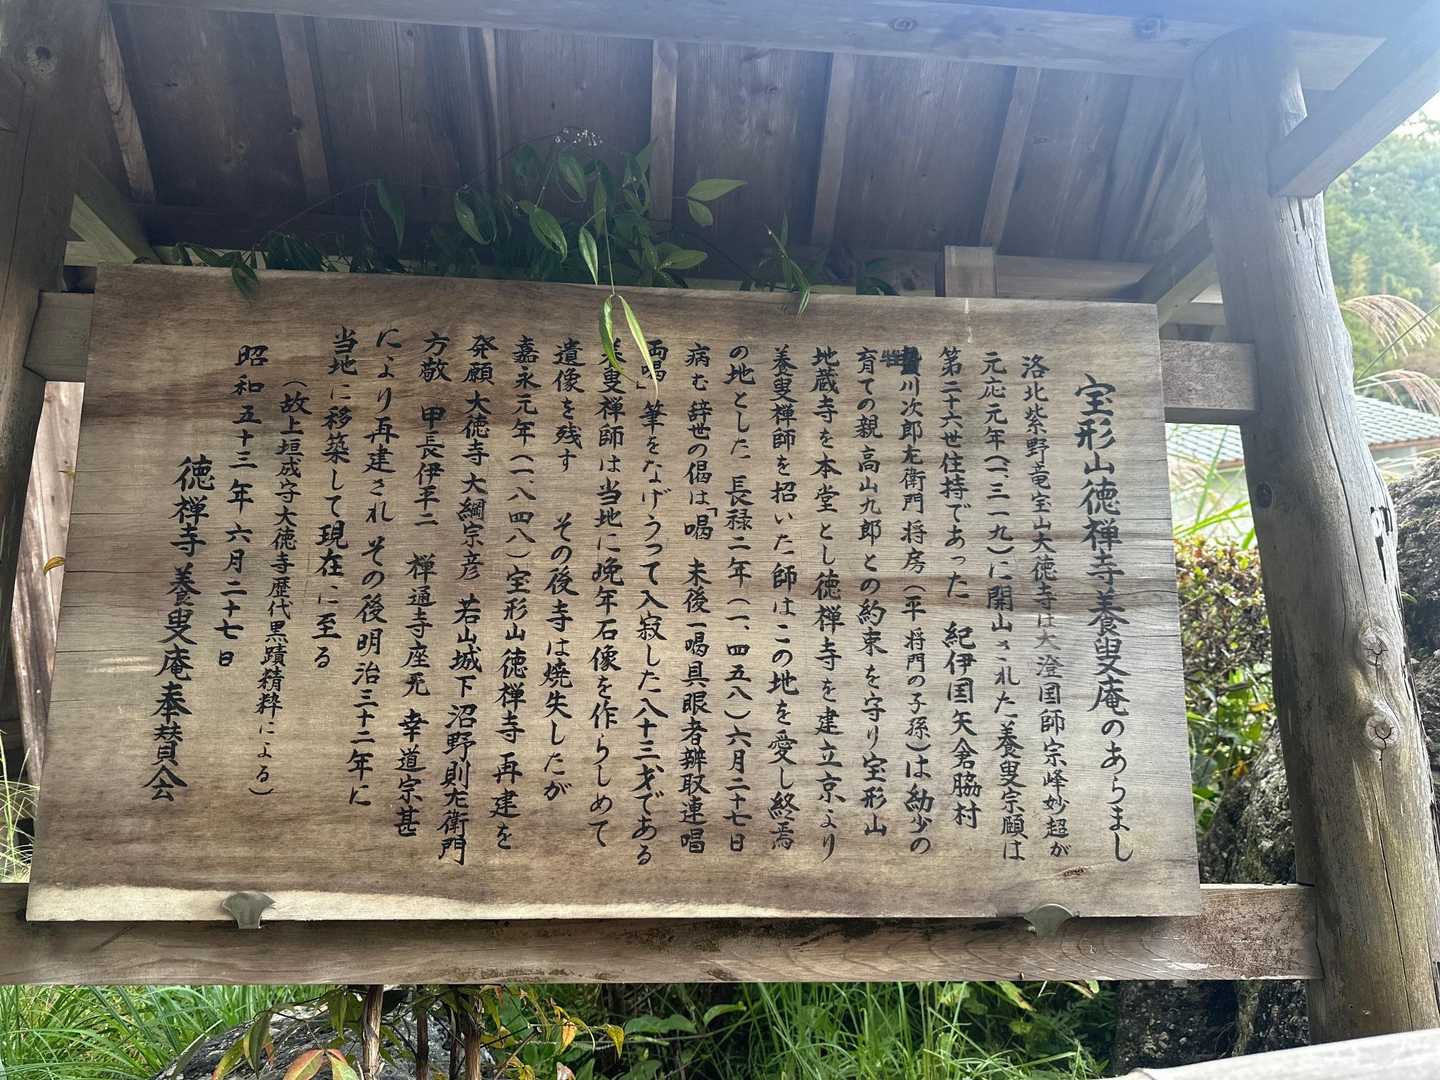 宝形山徳禅寺養叟庵のあらまし
洛北紫野竜宝山大徳寺は大澄国師宗峰妙超が
元応元年(一、三一九)に開山された 養叟宗頤は
第二十六世住持であった 紀伊国矢倉脇村
牲川次郎左衛門将房(平 将門の子孫)は幼少の
育ての親高山九郎との約束を守り宝形山
地蔵寺を本堂とし徳禅寺を建立京より
養叟禅師を招いた師はこの地を愛し終焉
の地とした 長禄二年(一、四五八)六月二十七日
病む 辞世の偈は「喝 末後一喝具眼者辨取連唱
両喝」筆をなげうって入寂した八十三才である
養叟禅師は当地に晩年石像を作らしめて
遺像を残す その後寺は焼失したが
嘉永元年(一、八四八)宝形山徳禅寺再建を
発願 大徳寺大綱宗彦 若山城下沼野則左衛門
方敬 甲長伊平二 禅通寺座元 幸道宗甚
により再建され その後明治三十二年に
当地に移築して現在に至る
(故上垣戒守大徳寺歴代黒蹟精粋による)
昭和五十三年六月二十七日
徳禅寺 養叟庵奉賛会